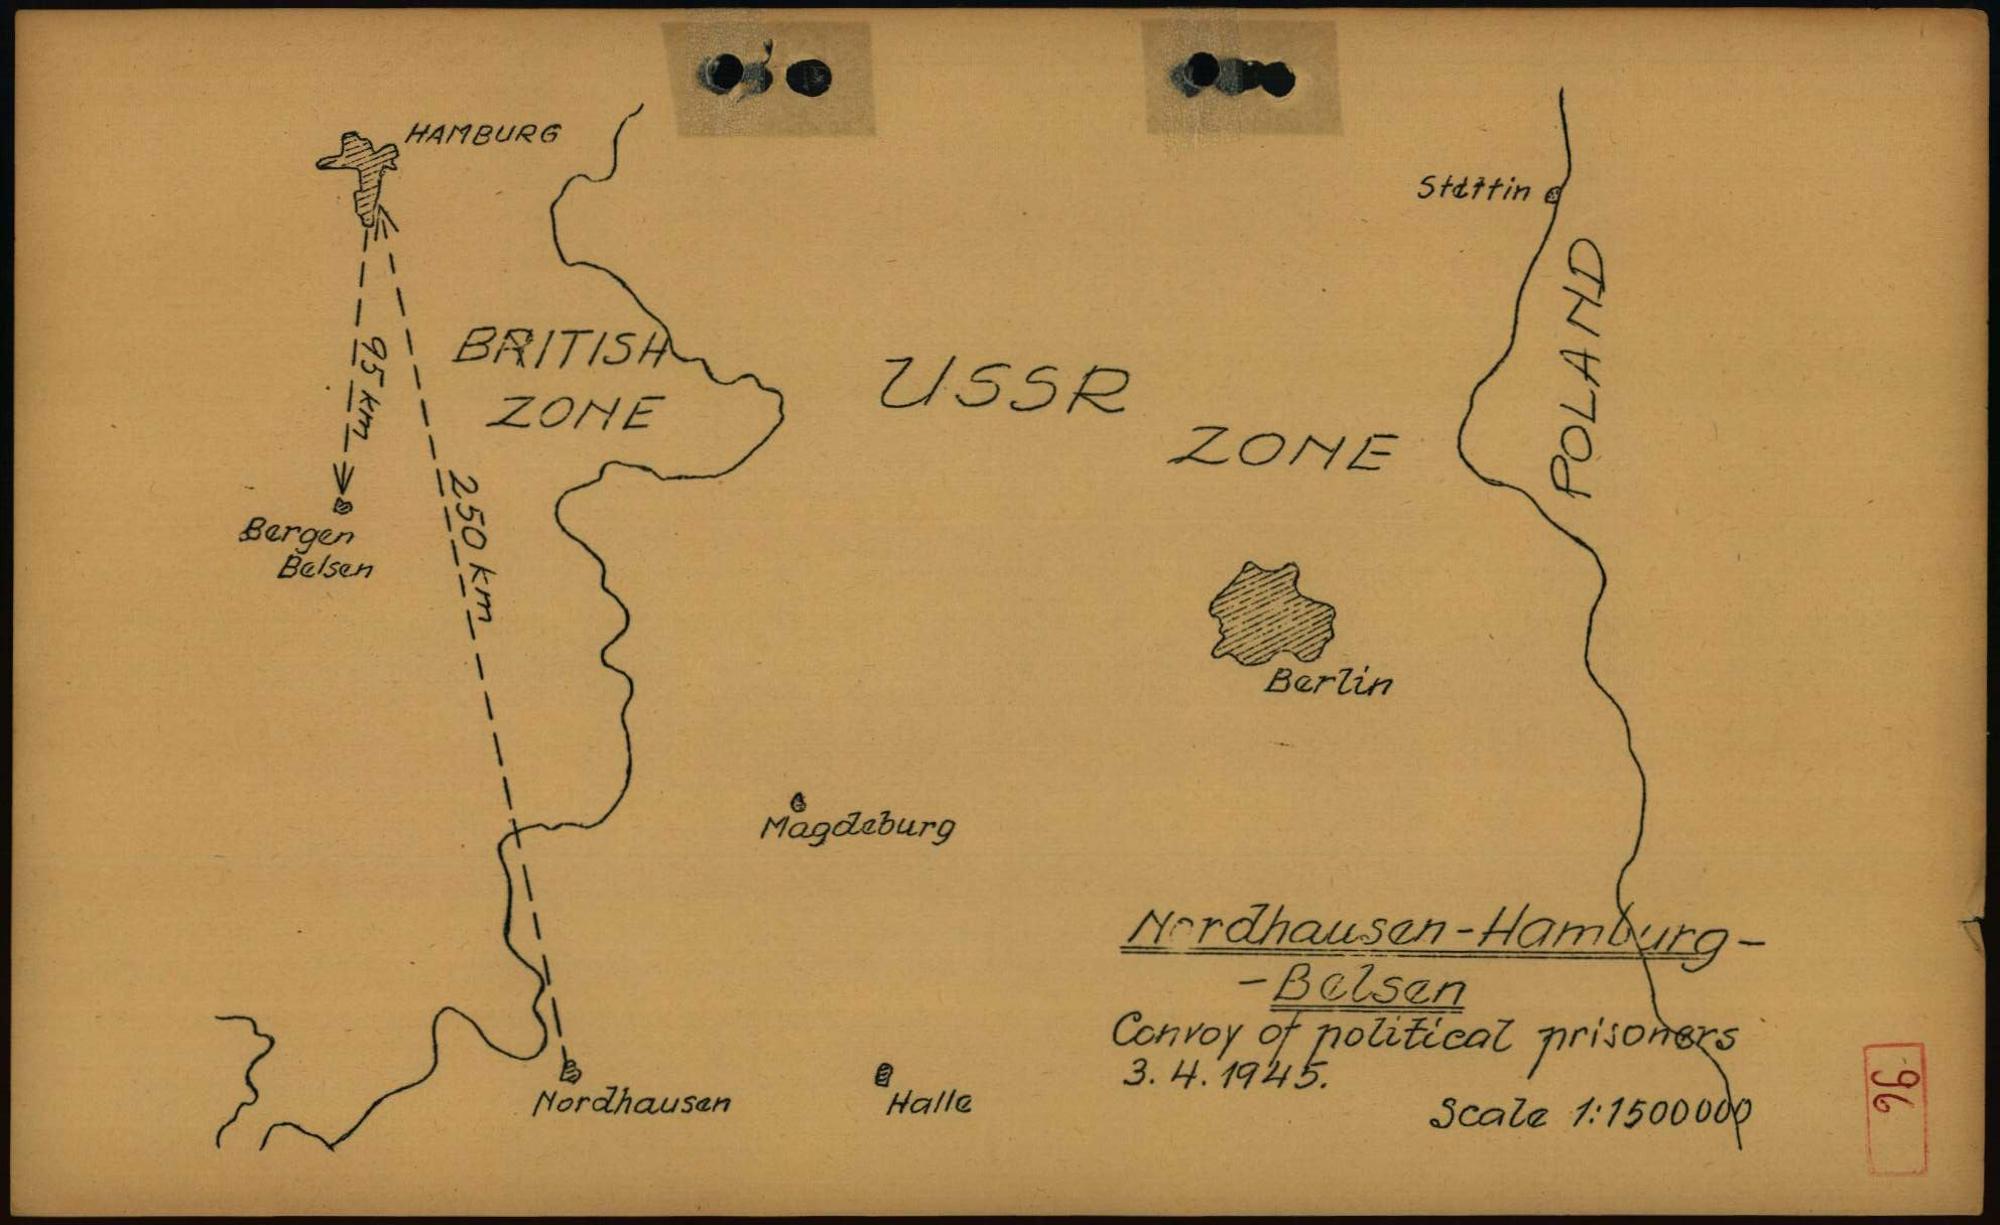 HAMBURG
Stettin
POLAND
BRITISH
ZONE
USSR
ZONE
95 km
250 km
Bergen
Belsen
Berlin
Magdeburg
Nordhausen
Halle
Nordhausen-Hamburg-
-Belsen
Convoy of political prisoners
3. 4. 1945.
Scale 1:1500000
96